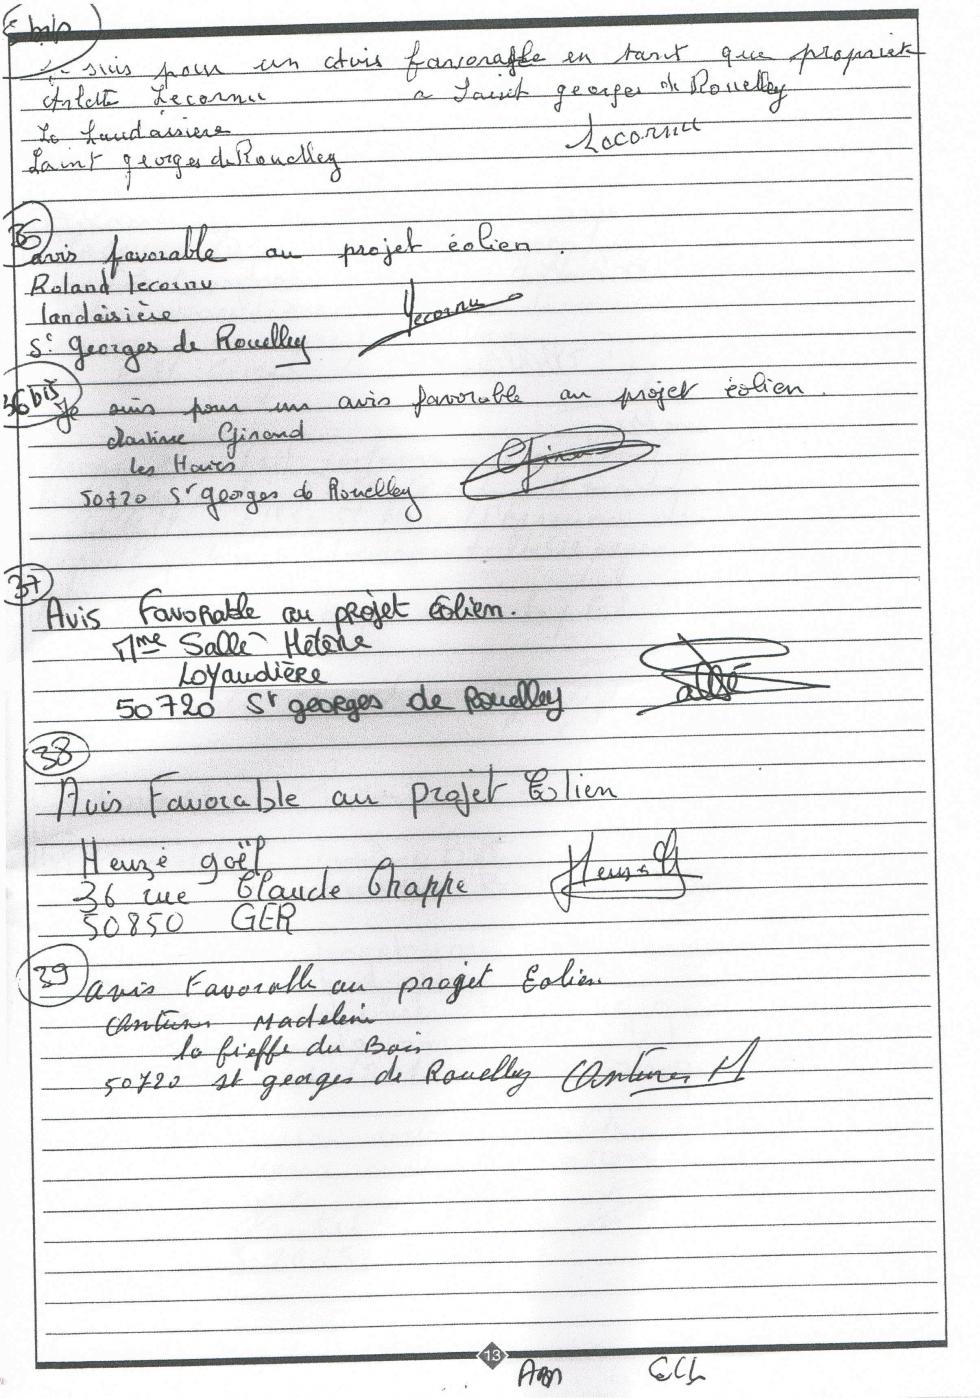 suis pour un avis favorable en tant que propriet
Arlette Lecornu a Saint georges de Rouelley
La Landaisiere Lecornu
Saint georges de Rouelley
36
avis favorable au projet éolien.
Roland lecornu
landaisière Lecornu
St georges de Rouelley
36 bis
Je suis pour un avis favorable au projet éolien.
Girond
les Haies
50720 St georges de Rouelley
37
Avis Favorable au projet éolien.
Mme Sallé Hélène
Loyaudière
50720 St georges de Rouelley Sallé
38
Avis Favorable au projet Eolien
Heuzé gaël
36 rue Claude Chappe
50850 GER
39
avis Favorable au projet Eolien
Antunes Madeleine
la fieffe du Bois
50720 st georges de Rouelley Antunes M
13